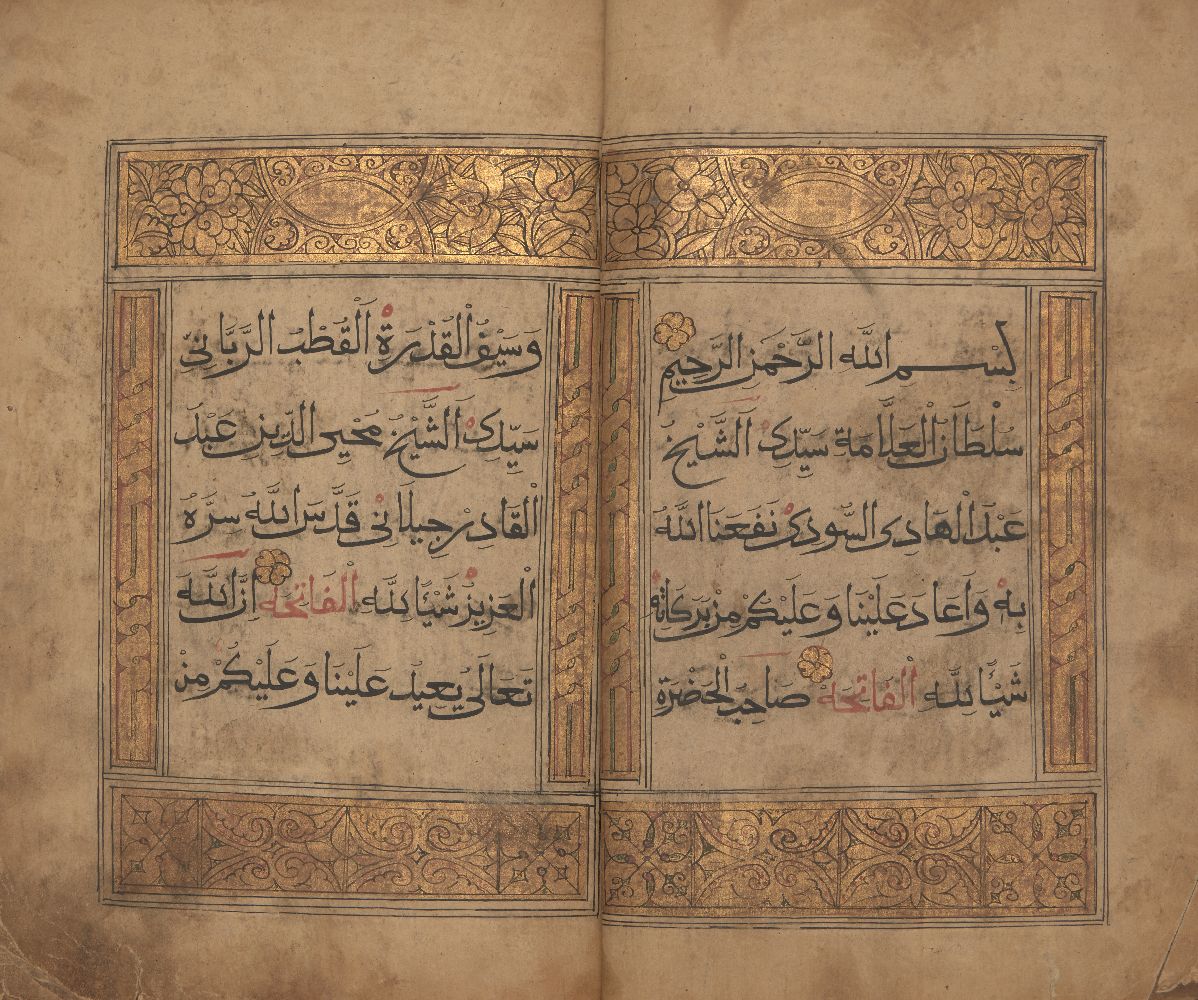 بِسْمِ اللَّه الرَّحْمَنِ الرَّحِيمِ
سُلْطَانُ الْعَلَّامَة سَيِّدِىْ اَلشَّيْخُ
عَبْدَ الْهَادِى السُّودِىْ نَفَعَنَا اللَّهُ
بِهْ وَاَعَادَ عَلَيْنَا وَعَلَيْكُمْ مِنْ بَرَكَاتِهْ
شَيْأً لِلَّه اَلْفَاتِحَهْ صَاحِبُ الْحَضْرَةِ
وَسَيْفُ الْقُدْرَةِ اَلْقُطْبُ الرَّبَّانِىّ
سَيِّدِىْ اَلشَّيْخُ مُحْيِى الدِّينِ عَبْدَ
الْقَادِرْ جِيلَانِى قَدَّسَ اللَّهُ سِرَّهُ
الْعَزِيزْ شَيْأً لِلَّه اَلْفَاتِحَهْ اِنَّ اللَّهَ
تَعَالَى يُعِيدُ عَلَيْنَا وَعَلَيْكُمْ مِنْ